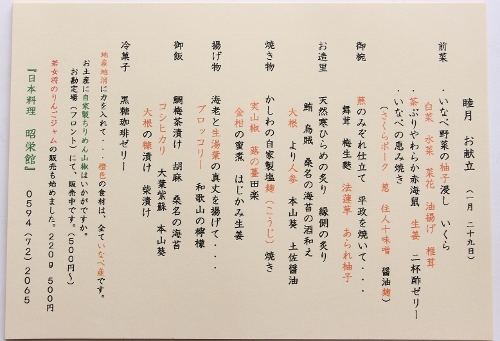 睦月 お献立 (一月 二十九日)
前菜 ・いなべ野菜の柚子浸し いくら
白菜 水菜 菜花 油揚げ 椎茸
・茶ぶりやわらか赤海鼠 生姜 二杯酢ゼリー
・いなべの恵み焼き
(さくらポーク 葱 住人十味噌 醤油麹)
御椀 蕪のみぞれ仕立て 平政を焼いて・・・・
舞茸 梅生麩 法蓮草 あられ柚子
お造里 天然寒ひらめの炙り 縁側の炙り
鮪 烏賊 桑名の海苔の酒和え
大根 より人参 本山葵 土佐醤油
焼き物 かしわの自家製塩麹(こうじ)焼き
実山椒 蕗の薹田楽
金柑の蜜煮 はじかみ生姜
揚げ物 海老と生湯葉の真丈を揚げて・・・・
ブロッコリー 和歌山の檸檬
御飯 鯛梅茶漬け 胡麻 桑名の海苔
コシヒカリ 大葉紫蘇 本山葵
大根の糠漬け 柴漬け
冷菓子 黒糖珈琲ゼリー
地産地消に力を入れて・・・橙色の食材は、全ていなべ産です。
お土産に自家製ちりめん山椒はいかがですか。
お勘定場(フロント)にて、販売中です。(500円～)
若女将のりんごジャムの販売も始めました。220g 500円
『日本料理 昭栄館』 0594(72)2065